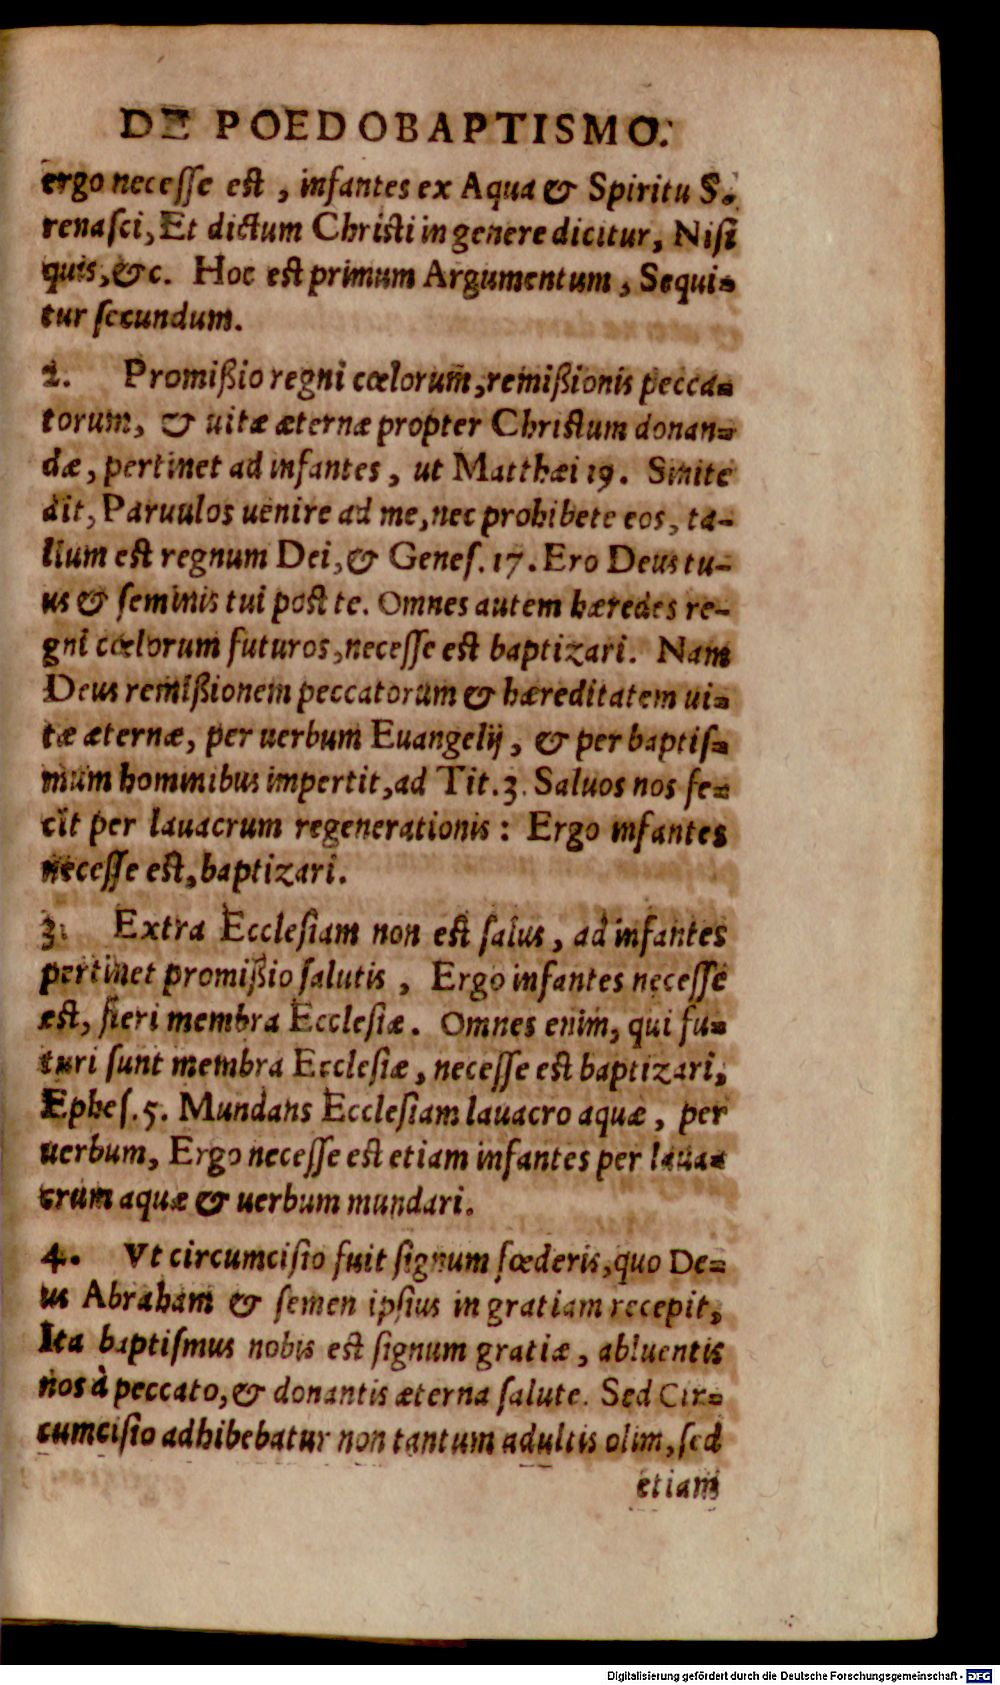 DE POEDOBAPTISMO.
ergo necesse est, infantes ex Aqua & Spiritu S.
renasci, Et dictum Christi in genere dicitur, Nisi
quis, &c. Hoc est primum Argumentum, Sequi=
tur secundum.
2. Promißio regni cœlorum, remißionis pecca=
torum, & uitæ æternæ propter Christum donan=
dæ, pertinet ad infantes, ut Matthæi 19. Sinite
ait, Paruulos uenire ad me, nec prohibete eos, ta-
lium est regnum Dei, & Genes. 17. Ero Deus tu-
us & seminis tui post te. Omnes autem hæredes re-
gni cœlorum futuros, necesse est baptizari. Nam
Deus remißionem peccatorum & hæreditatem ui=
tæ æternæ, per uerbum Euangelij, & per baptis=
mum hominibus impertit, ad Tit. 3. Saluos nos fe=
cit per lauacrum regenerationis: Ergo infantes
necesse est, baptizari.
3. Extra Ecclesiam non est salus, ad infantes
pertinet promißio salutis, Ergo infantes necesse
est, fieri membra Ecclesiæ. Omnes enim, qui fu=
turi sunt membra Ecclesiæ, necesse est baptizari,
Ephes. 5. Mundans Ecclesiam lauacro aquæ, per
uerbum, Ergo necesse est etiam infantes per laua=
crum aquæ & uerbum mundari.
4. Vt circumcisio fuit signum fœderis, quo De=
us Abraham & semen ipsius in gratiam recepit,
Ita baptismus nobis est signum gratiæ, abluentis
nos à peccato, & donantis æterna salute. Sed Cir=
cumcisio adhibebatur non tantum adultis olim, sed
etiam
Digitalisierung gefördert durch die Deutsche Forschungsgemeinschaft - DFG